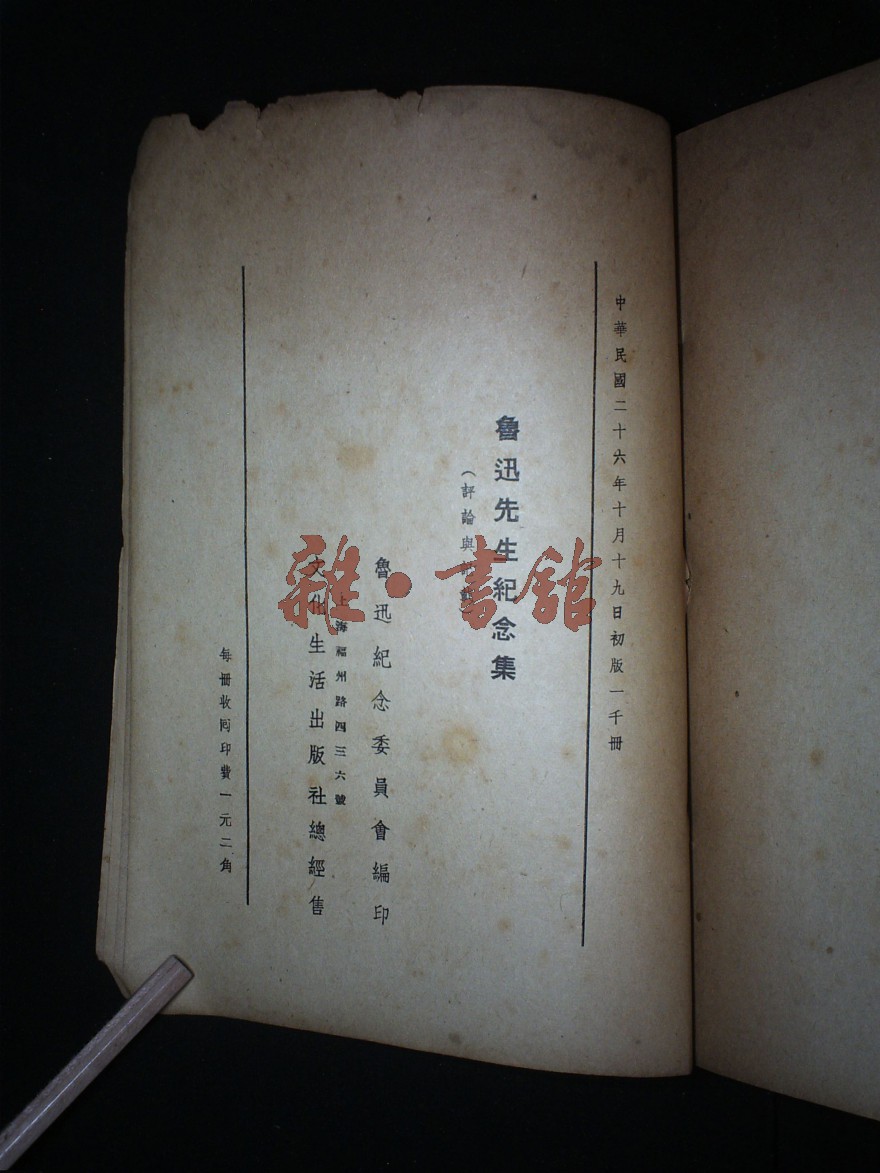 中華民國二十六年十月十九日初版一千冊
魯迅先生紀念集
（評論與
魯迅紀念委員會編印
上海福州路四三六號
文化生活出版社總經售
每冊收囘印費一元二角
雜·書館